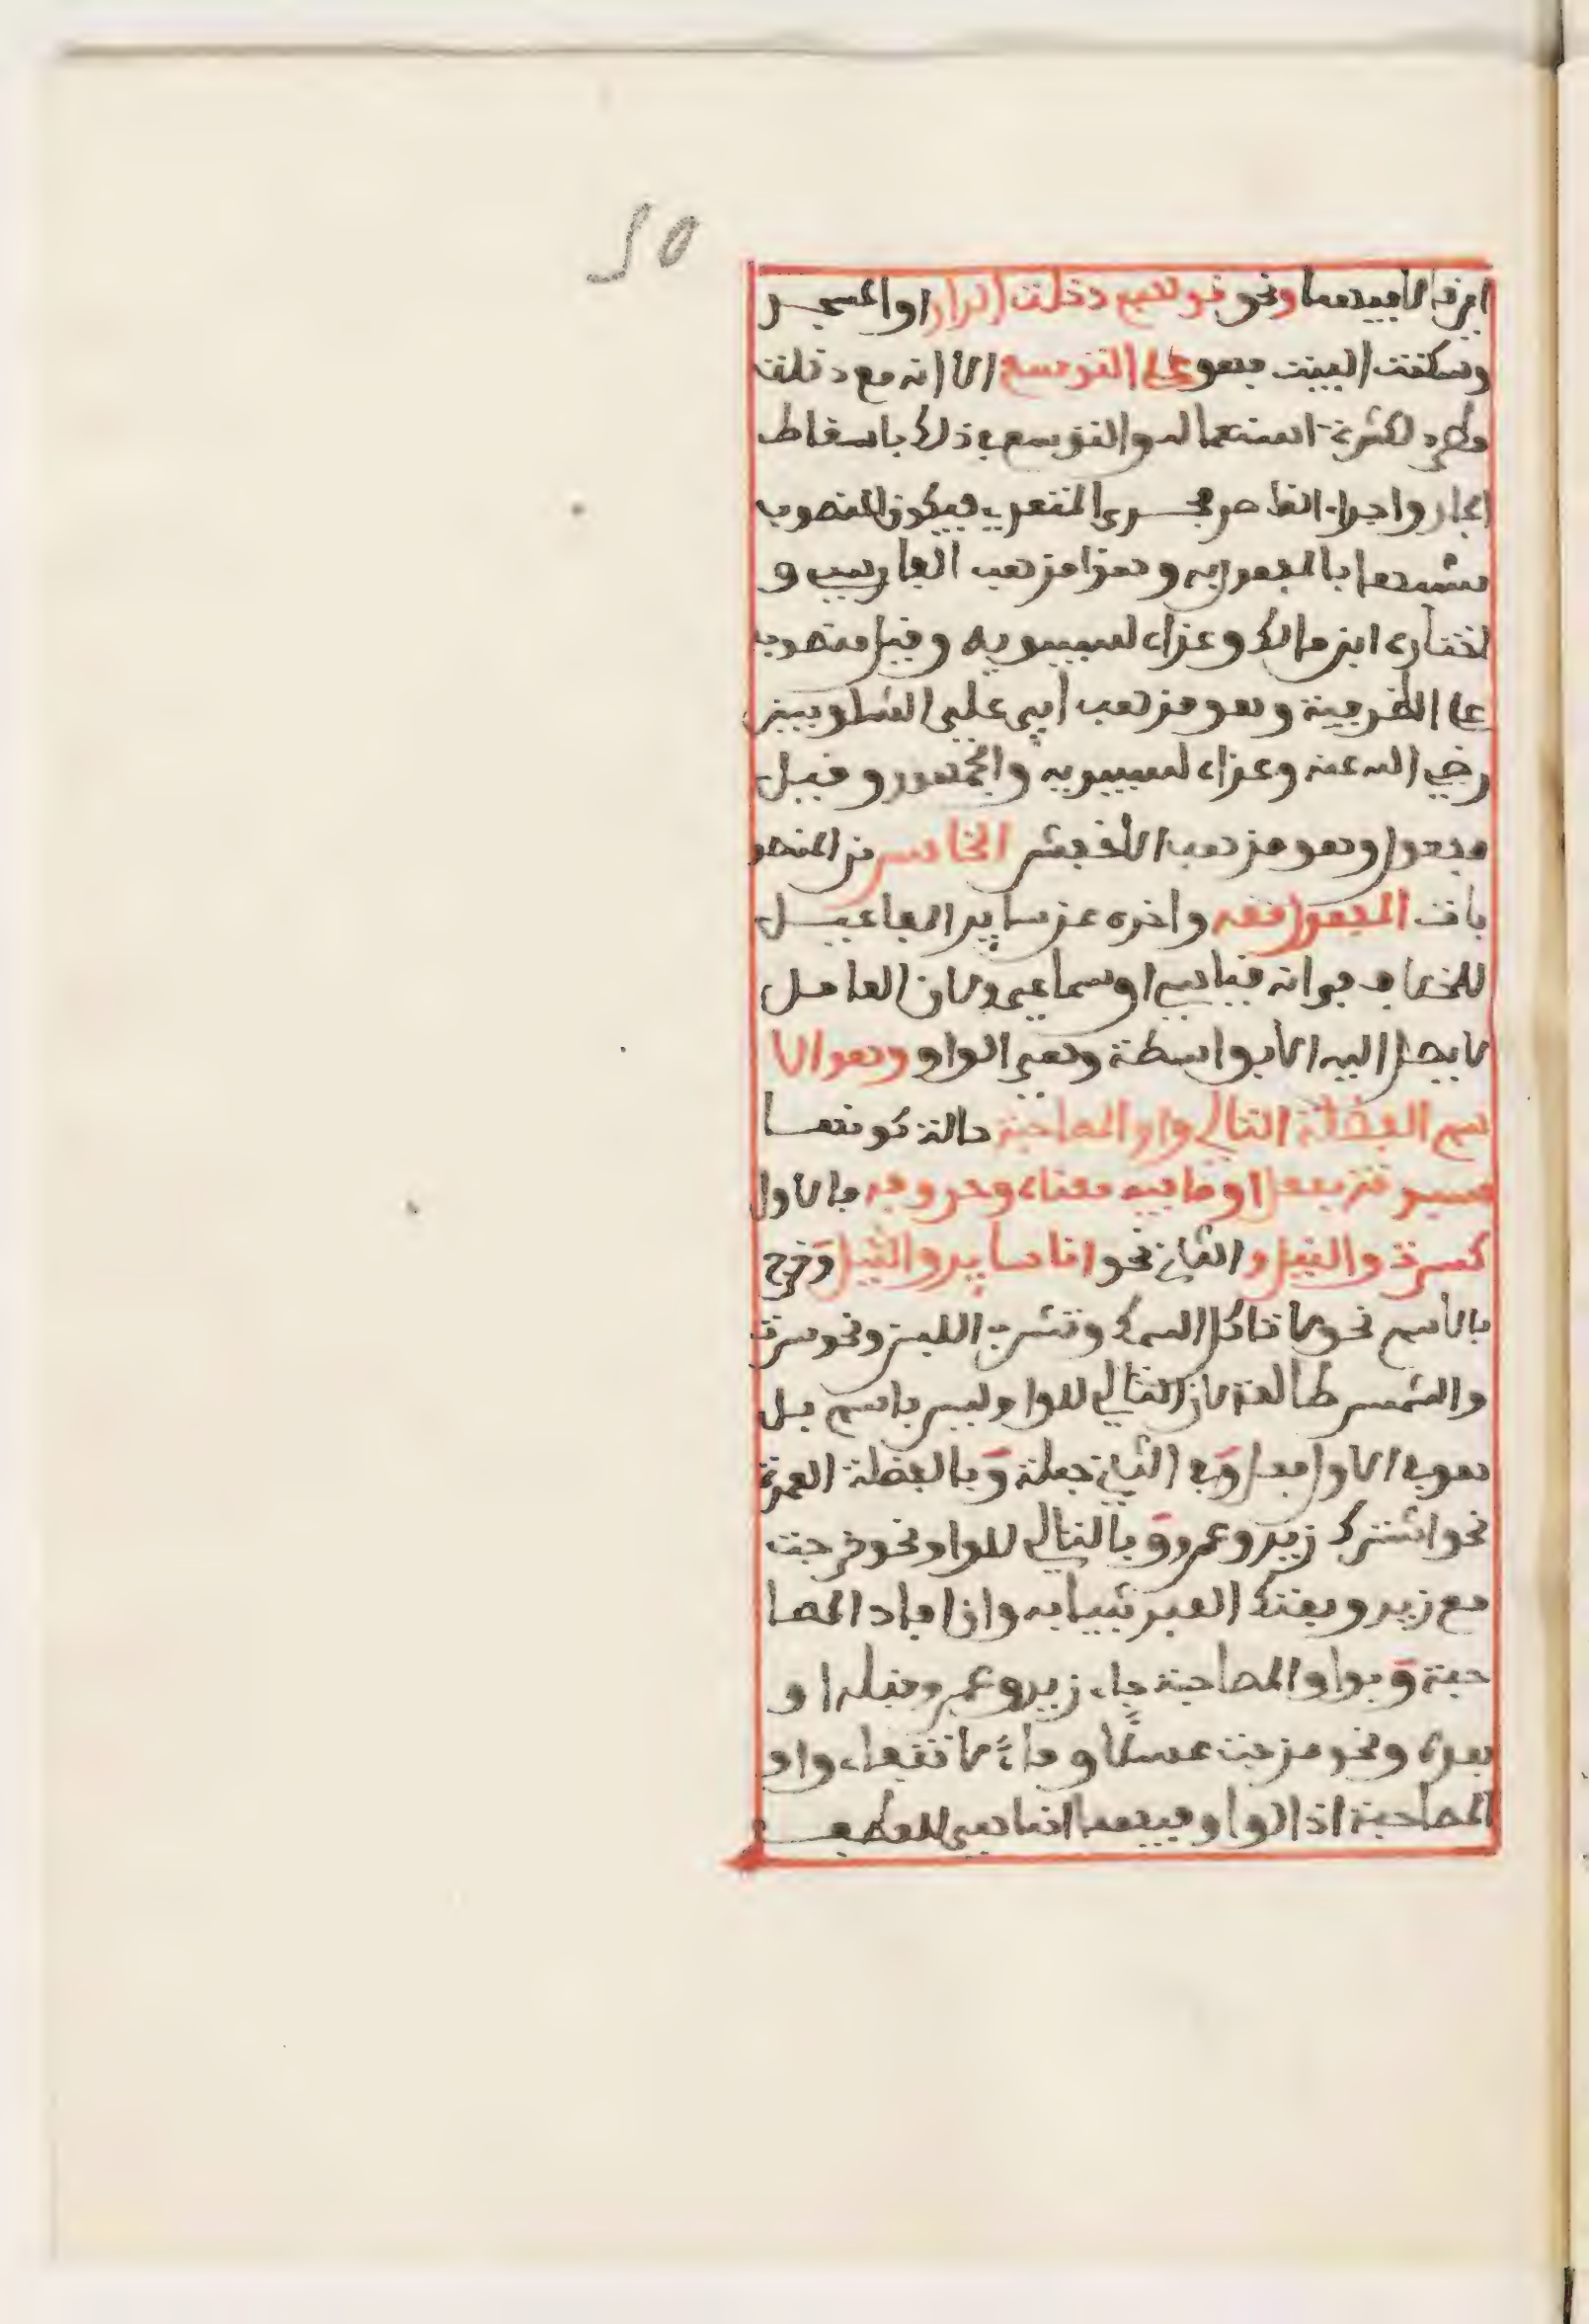 50
ابرة الا فيهما ونحو قولهم دخلت الدار او المسجد
وسكنت البيت فهو على التوسع الا انه مع دخلت
مطرد لكثرة استعماله والتوسع في ذلك باسقاط
الجار واجراء القاصر مجرى المتعدي فيكون المنصوب
مشبها بالمفعول به وهذا مذهب الفارسي و
اختاره ابن مالك وعزاه لسيبويه وقيل منصوب
على الظرفية وهو مذهب أبي علي الشلوبين
رضي الله عنه وعزاه لسيبويه والجمهور وقيل
مفعول به وهو مذهب الأخفش الخامس من المنصو
بات المفعول معه واخره عن ساير المفاعيل
للخلاف فيه انه قياسي او سماعي ولان العامل
لا يصل اليه الا بواسطة وهي الواو وهو الا
سم الفضلة التالي واو المصاحبة حالة كونها
مسبوقة بفعل او ما فيه معناه وحروفه فالاول
كسرت والنيل و الثاني نحو انا ساير والنيل وخرج
بالاسم نحو لا تاكل السمك وتشرب اللبن ونحو سرت
والشمس طالعة لان التالي للواو ليس باسم بل
هو في الاول فعل وفي الثاني جملة وبالفضلة العمدة
نحو اشترك زيد وعمرو وبالتالي للواو نحو خرجت
مع زيد وبعتك العبد بثيابه وان افاد المصا
حبة وبواو المصاحبة جاء زيد وعمرو قبله او
بعده ونحو مزجت عسلًا وماءً لانتفاء واو
المصاحبة اذ الواو فيهما انما هي للعطف